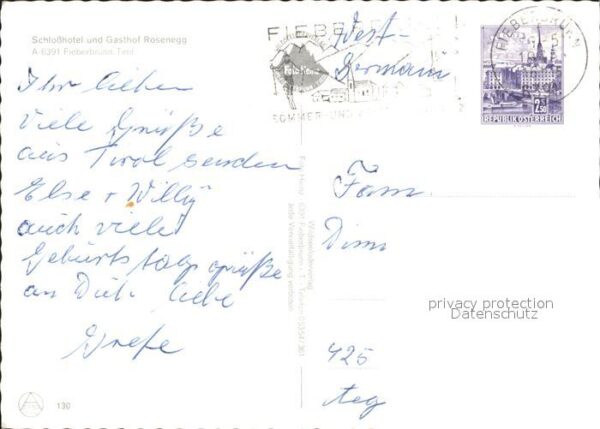 Schloßhotel und Gasthof Rosenegg
A 6391 Fieberbrunn Tirol
Ihr Lieben
Viele Grüße
aus Tirol senden
Else + Willy
auch viele
Geburtstagsgrüße
an Dich liebe
Grete
130
FIEBERBRUNN
SOMMER- UND
West-
Germany
FIEBERBRUNN
2.50
REPUBLIK ÖSTERREICH
Fam.
425
privacy protection
Datenschutz